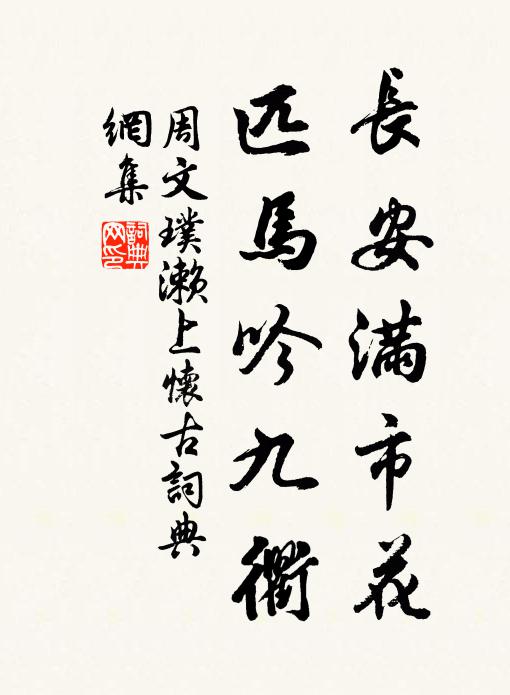 長安滿市花
匹馬吟九衢
周文璞瀨上懷古詞典
網集
詞典
网印